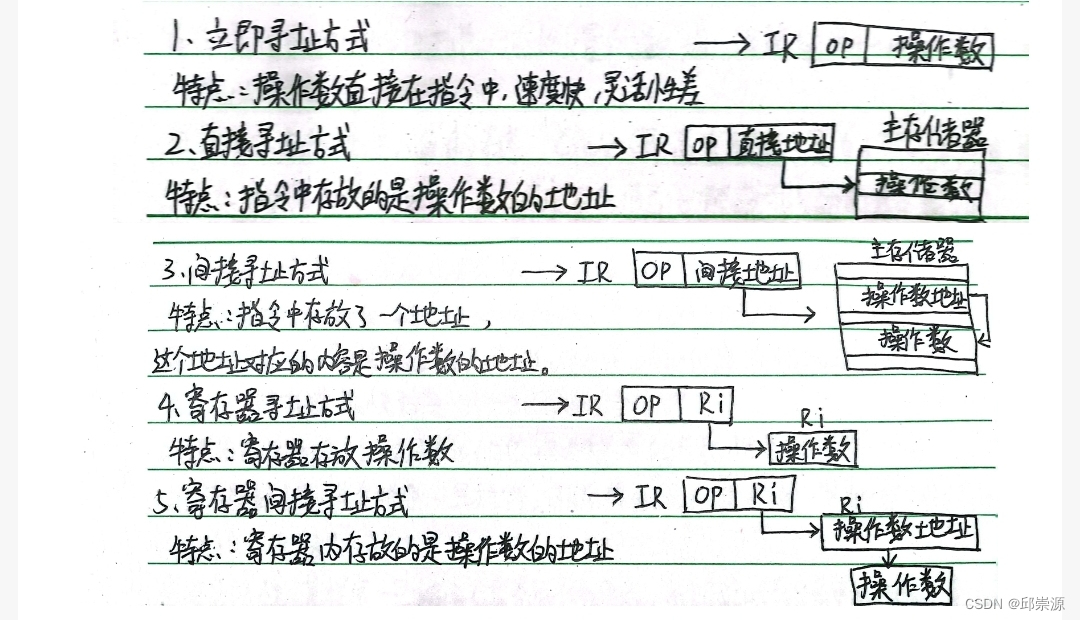 1、立即寻址方式 → IR OP 操作数
特点:操作数直接在指令中,速度快,灵活性差
2、直接寻址方式 → IR OP 直接地址 主存储器
特点:指令中存放的是操作数的地址 操作数
3、间接寻址方式 → IR OP 间接地址 主存储器
操作数地址
特点:指令中存放了一个地址,
操作数
这个地址对应的内容是操作数的地址。
4、寄存器寻址方式 → IR OP Ri
Ri
特点:寄存器存放操作数 操作数
5、寄存器间接寻址方式 → IR OP Ri
Ri
特点:寄存器内存放的是操作数的地址 操作数地址
操作数
CSDN @邱崇源